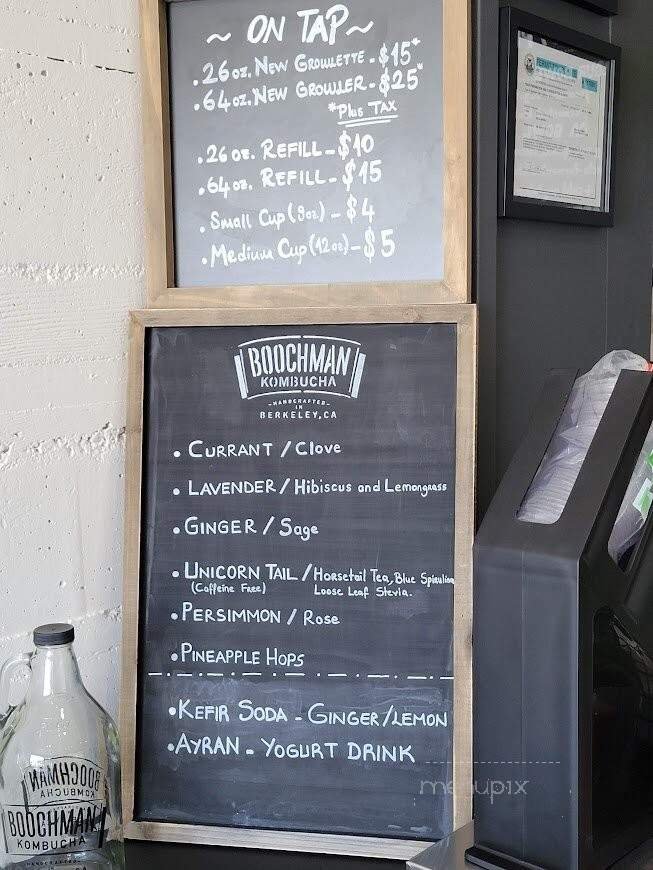 ~ ON TAP ~
. 26 oz. NEW GROWLETTE - $15*
. 64 oz. NEW GROWLER - $25*
*Plus TAX
. 26 oz. REFILL - $10
. 64 oz. REFILL - $15
. Small Cup (9oz) - $4
. Medium Cup (12oz) - $5
BOOCHMAN
KOMBUCHA
-HANDCRAFTED-
IN
BERKELEY, CA
• CURRANT / Clove
• LAVENDER / Hibiscus and Lemongrass
• GINGER / Sage
• UNICORN TAIL / Horsetail Tea, Blue Spirulina
(Caffeine Free) Loose Leaf Stevia.
• PERSIMMON / Rose
• PINEAPPLE HOPS
• KEFIR SODA - GINGER/LEMON
• AYRAN - YOGURT DRINK
menupix
BOOCHMAN
KOMBUCHA
BOOCHMAN
KOMBUCHA
HANDCRAFTED